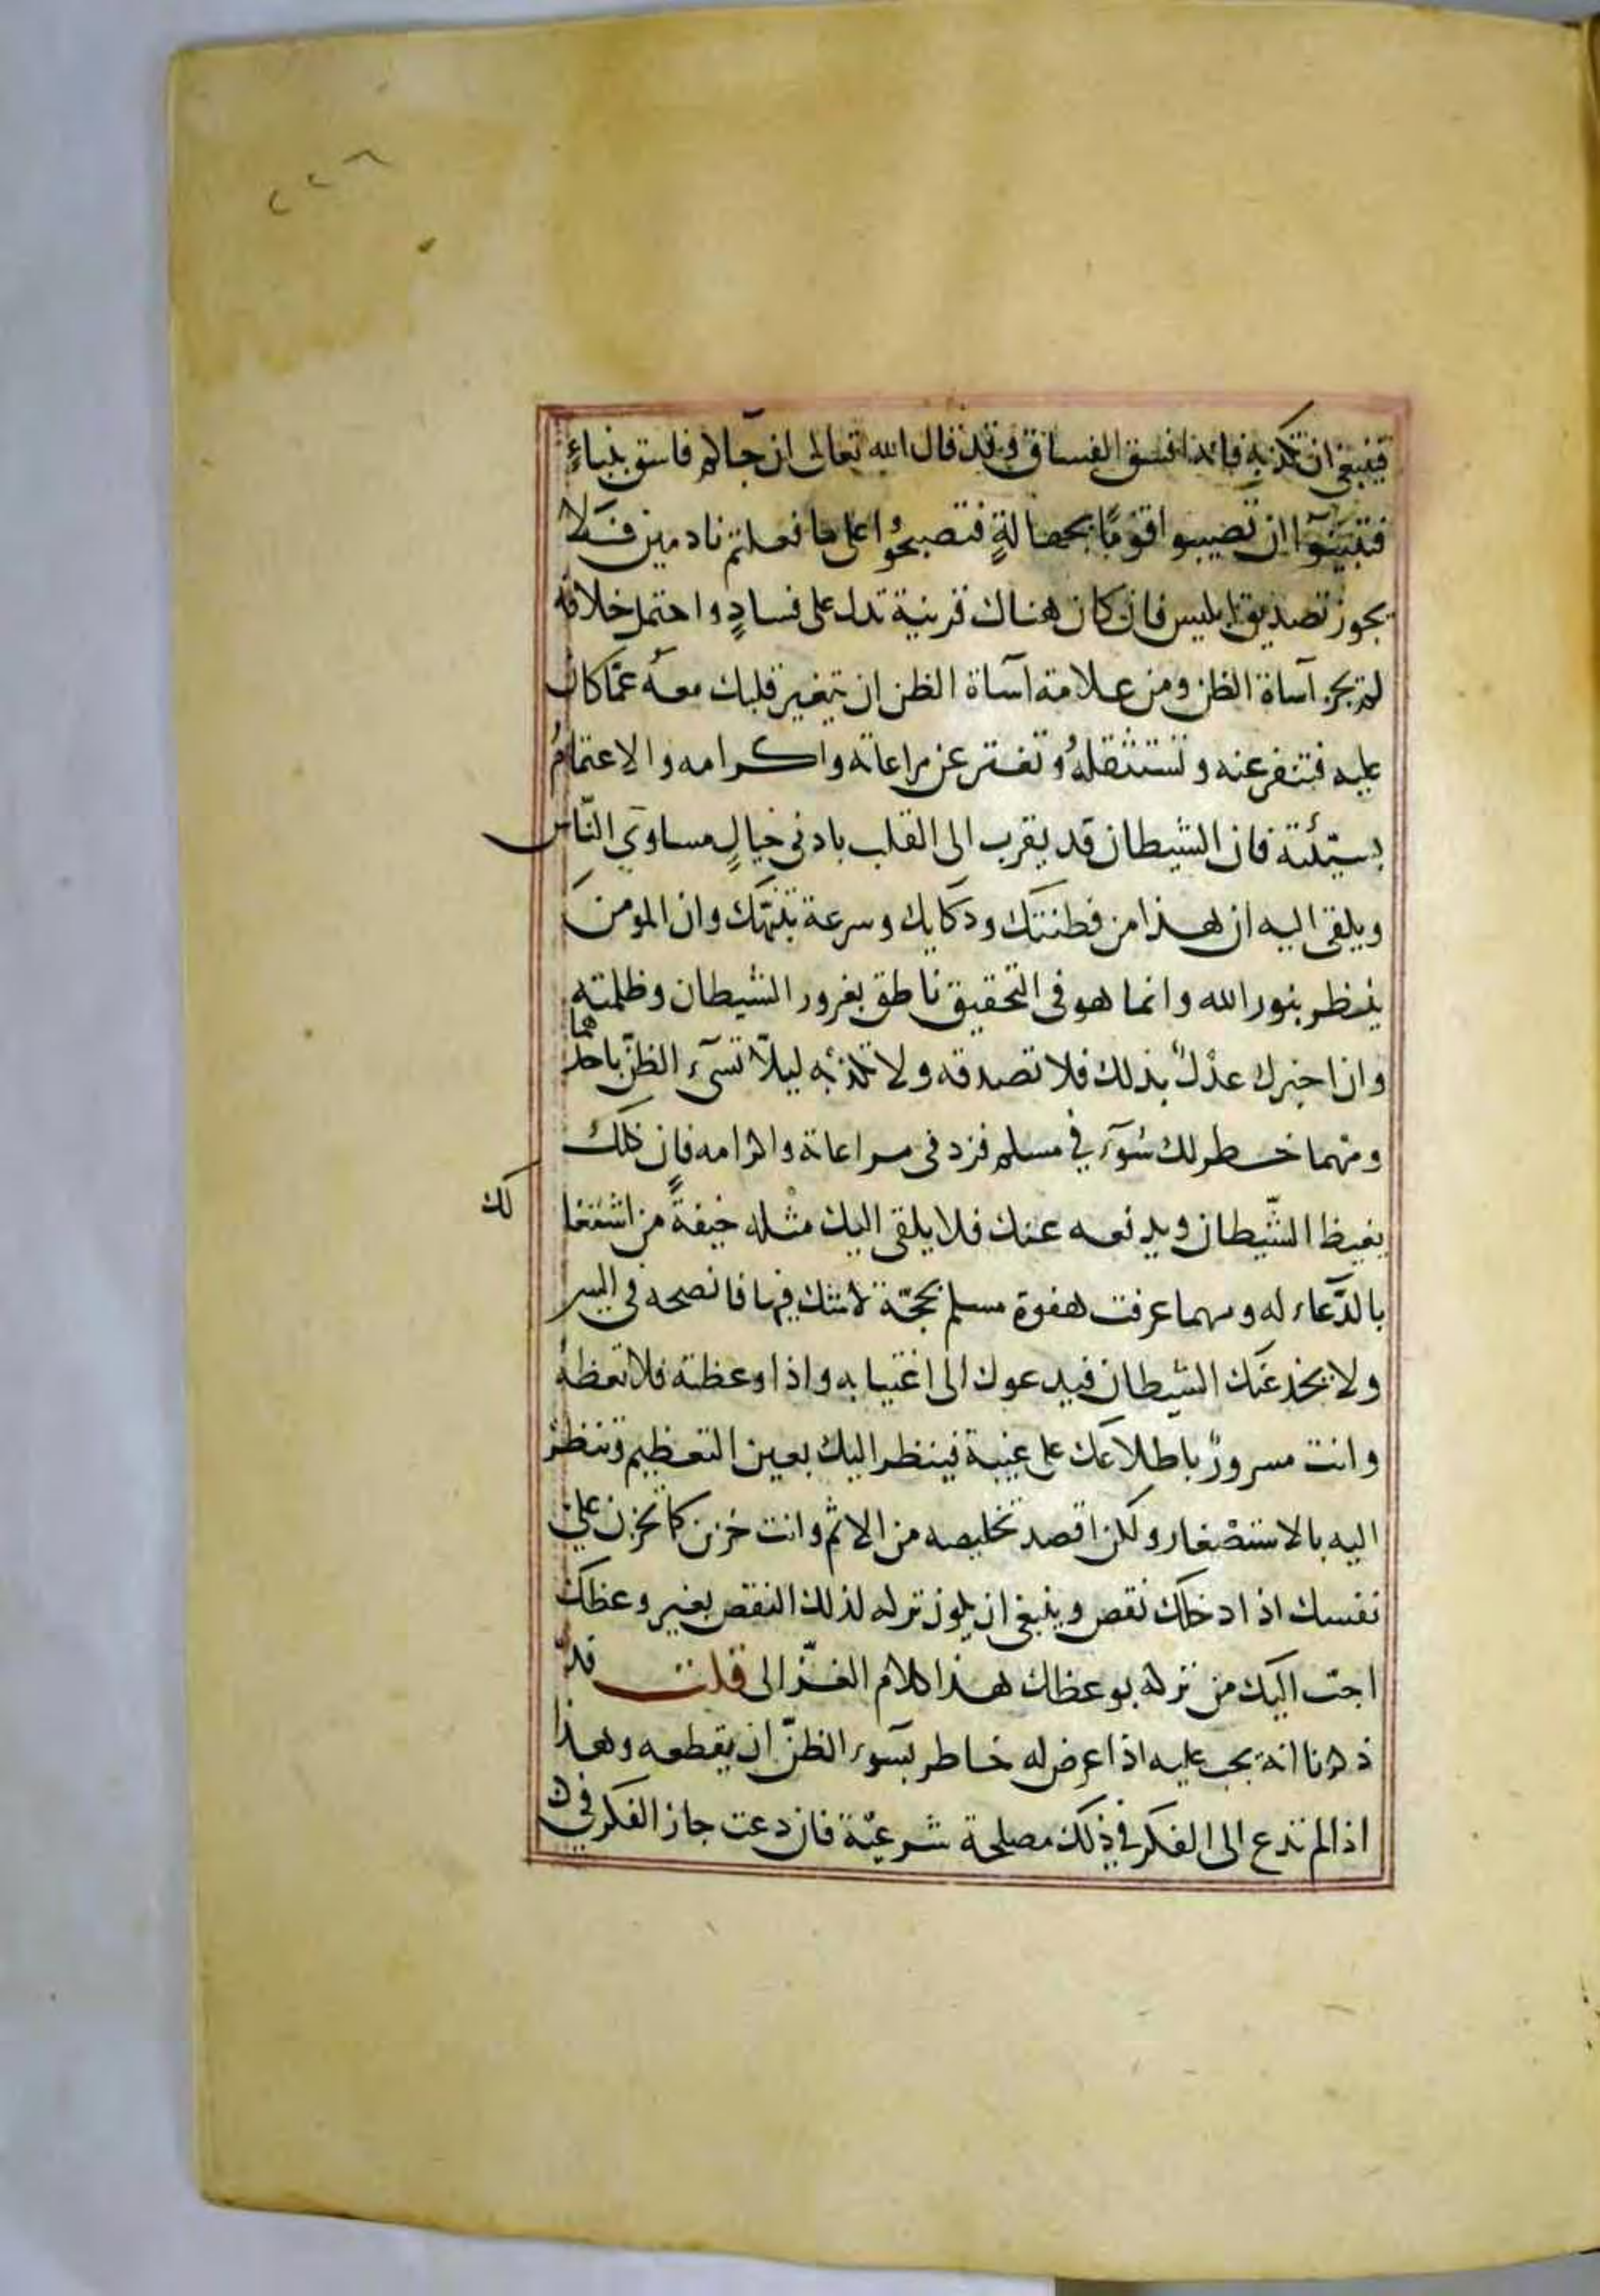 ٢٢٦
فينبغي ان تكذبه فانه افسق الفساق وقد قال الله تعالى ان جآكم فاسق بنباءٍ
فتبينوآ ان تصيبوا قومًا بجهالةٍ فتصبحُوا على ما فعلتم نادمين فَلا
يجوز تصديق ابليس فان كان هناك قرينية تدل على فسادٍ واحتمل خلافه
لم يجز آساة الظن ومن علامة آساة الظن ان يتغير قلبك معهُ عمّا كان
عليه فتنفر عنه وتستثقلهُ وتفتر عن مراعاته واكرامه والاغتمامُ
بسيّئته فان الشيطان قد يقرب الى القلب بادنى خيالٍ مساوي النّاس
ويلقى اليه ان هذا من فطنتك وذكايك وسرعة تنبّهك وان المومنَ
ينظر بنور الله وانما هو فى التحقيق ناطق بغرور الشيطان وظلمته
وان اخبرك عدْلٌ بذلك فلا تصدقه ولا تكذبه ليلّا تسىَٓء الظنّ باحدهما
ومهما خطر لك سُوَٓء في مسلم فزد فى مراعاته واكرامه فان ذلك
يغيظ الشّيطان ويدفعه عنك فلا يلقى اليك مثْله خيفةً من اشتغا
لك
بالدّعاء له ومهما عرفت هفوة مسلم بحجّة لا شك فيها فانصحه فى السر
ولا يخدعنّك الشيطان فيدعوك الى اغتيابه واذا وعظته فلا تعظهُ
وانت مسرورٌ باطلاعك على عيبة فينظر اليك بعين التعظيم وتنظر
اليه بالاستصْغار ولكن اقصد تخليصه من الاثم وانت حزين كما تحزن على
نفسك اذا دخلك نقص وينبغى ان يكون تركه لذلك النقص بغير وعظك
احبّ اليك من تركه بوعظك هذا كلام الغزّالى قلت قد
ذكرنا انه يجب عليه اذا عرض له خاطر بسوء الظنّ ان يقطعه وهذا
اذا لم تدع الى الفكر في ذلك مصلحة شرعيّة فان دعت جاز الفكر في